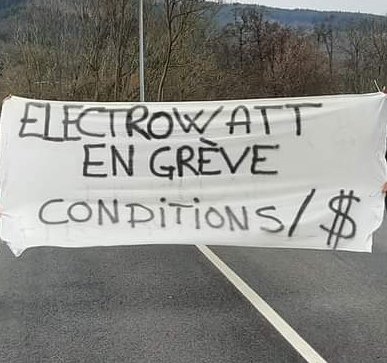 ELECTROWATT
EN GRÈVE
CONDITIONS/$